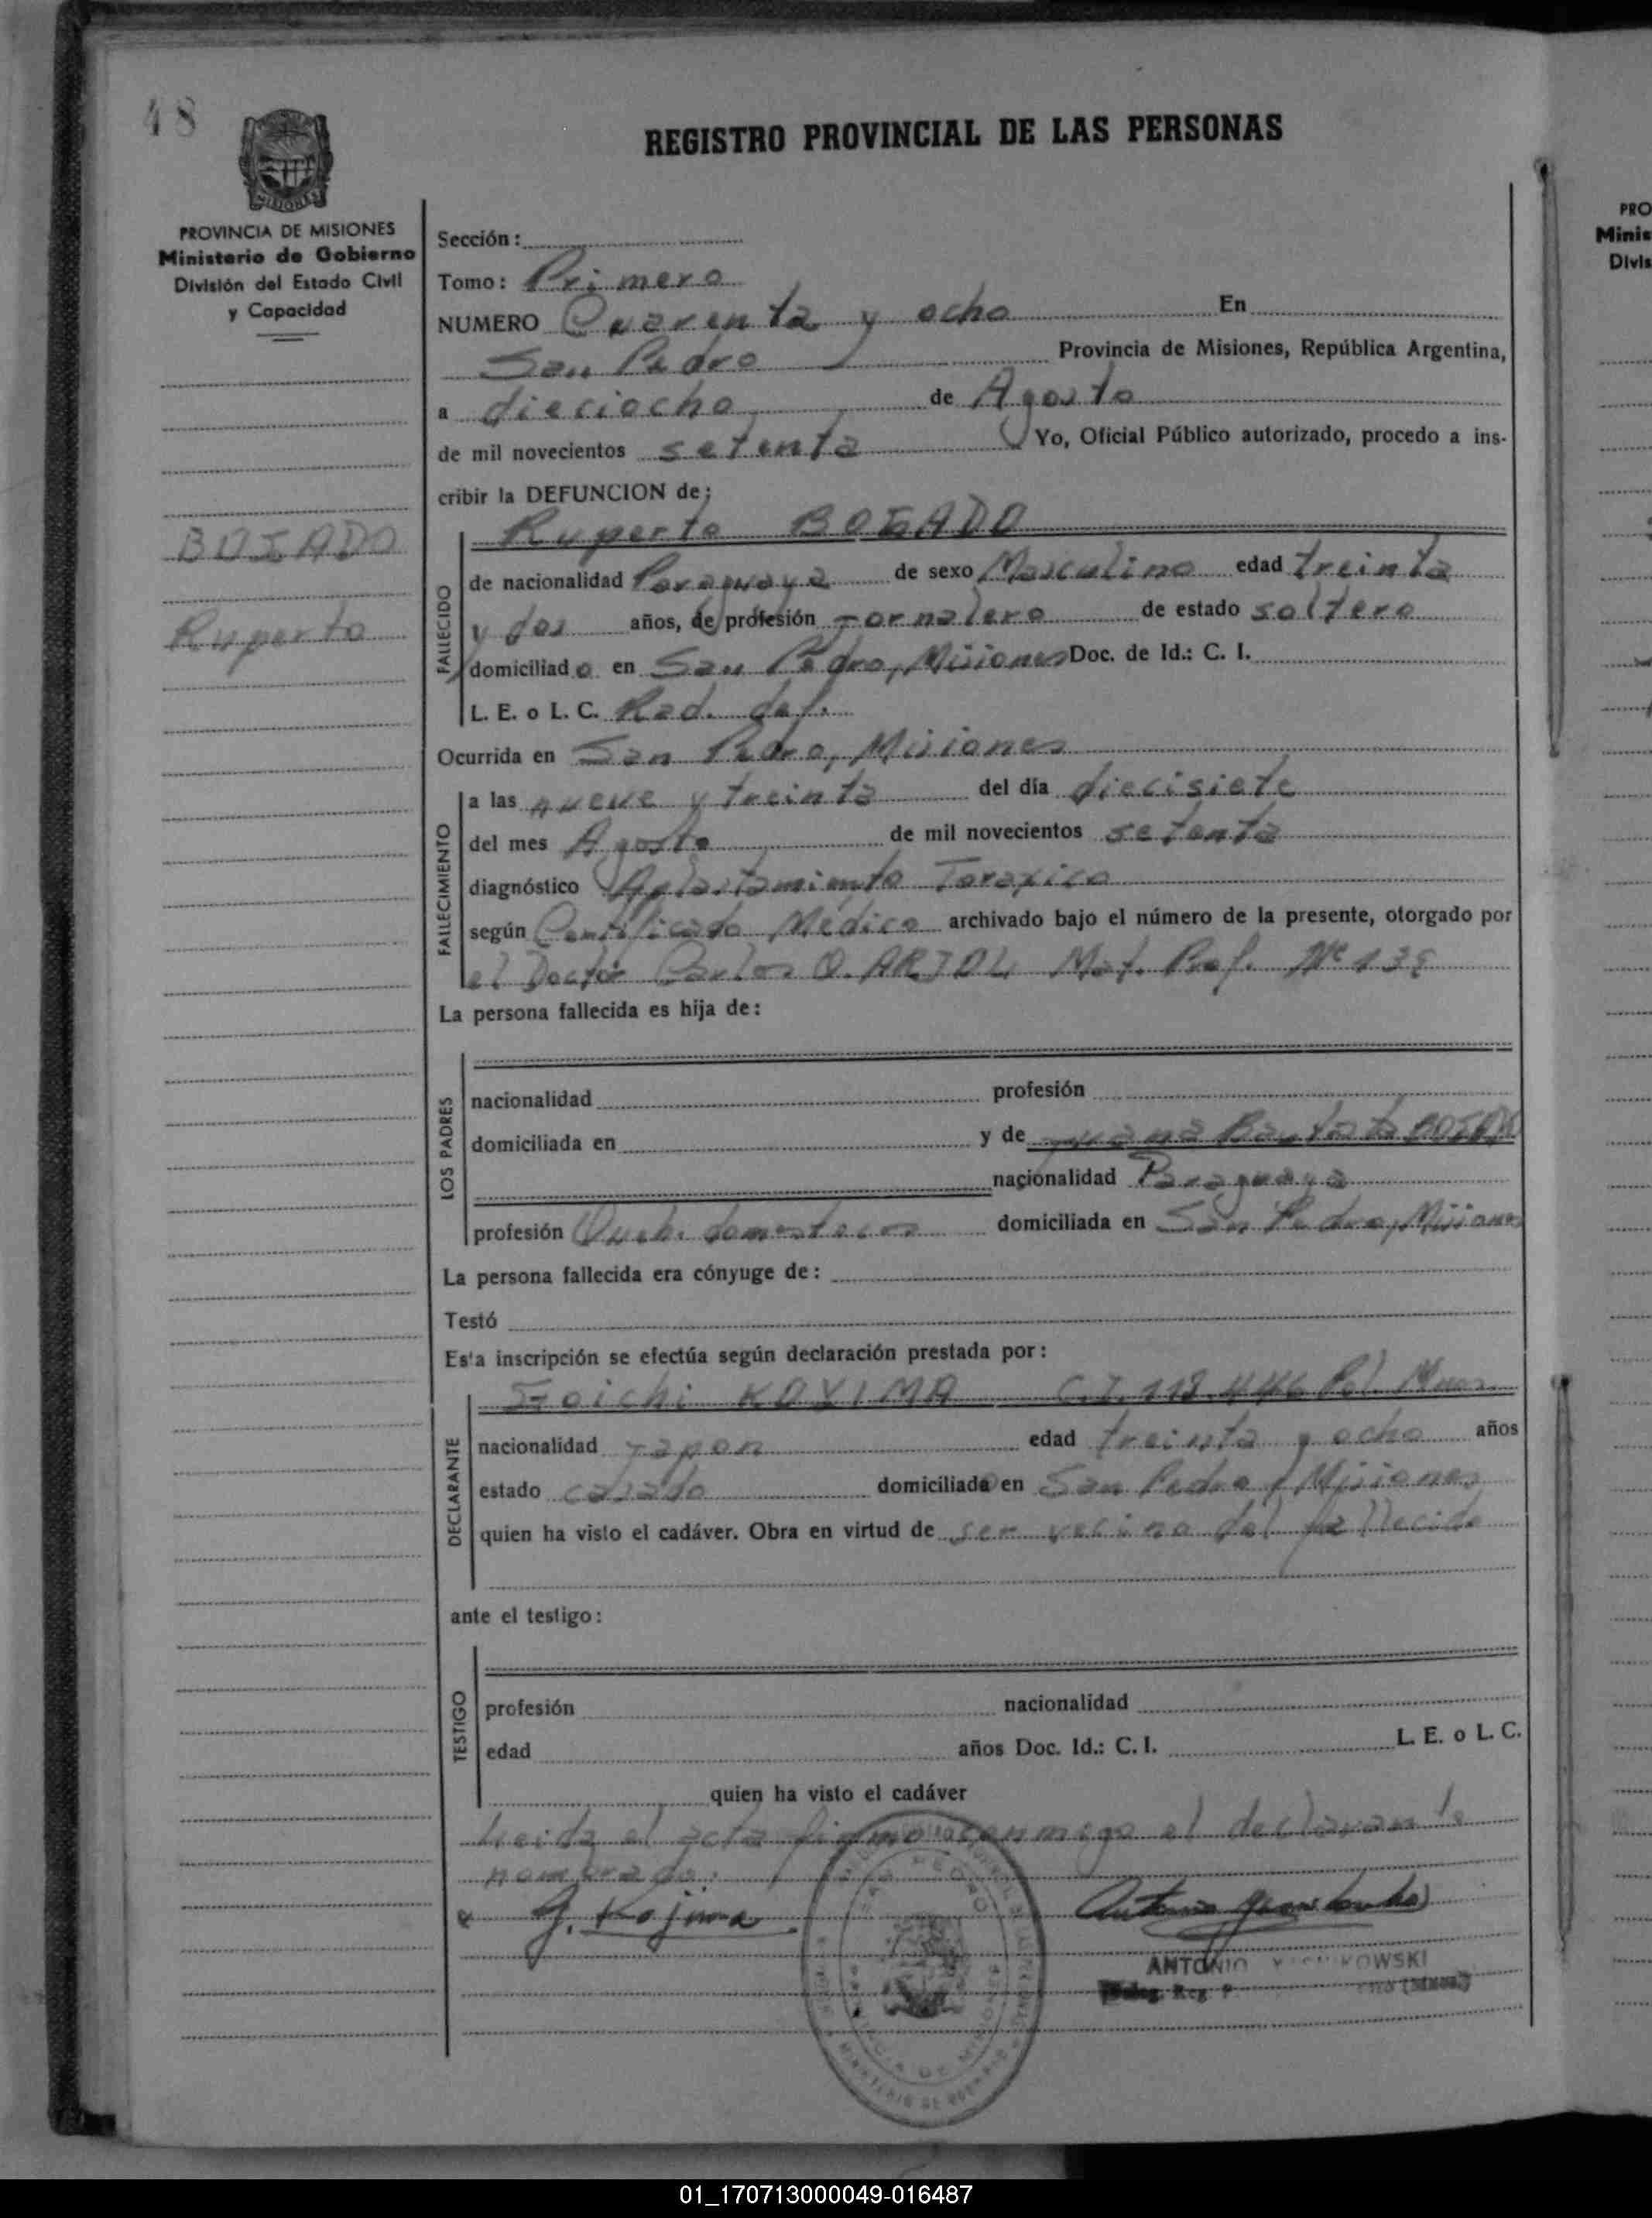 48
REGISTRO PROVINCIAL DE LAS PERSONAS
MISIONES
PROVINCIA DE MISIONES
Ministerio de Gobierno
División del Estado Civil
y Capacidad
BOGADO
Ruperto
Sección:
Tomo: Primero
NUMERO Cuarenta y ocho En
San Pedro Provincia de Misiones, República Argentina,
a dieciocho de Agosto
de mil novecientos setenta Yo, Oficial Público autorizado, procedo a ins-
cribir la DEFUNCION de:
Ruperto BOGADO
FALLECIDO
de nacionalidad Paraguaya de sexo Masculino edad treinta
y dos años, de profesión Jornalero de estado soltero
domiciliado en San Pedro, Misiones Doc. de Id.: C. I.
L. E. o L. C. Rad. def.
Ocurrida en San Pedro, Misiones
FALLECIMIENTO
a las nueve y treinta del día diecisiete
del mes Agosto de mil novecientos setenta
diagnóstico Aplastamiento Toraxico
según Certificado Médico archivado bajo el número de la presente, otorgado por
el Doctor Carlos O. Mat. Prof. Nº
La persona fallecida es hija de:
LOS PADRES
nacionalidad profesión
domiciliada en y de Juana Bautista BOGADO
nacionalidad Paraguaya
profesión Queh. domesticos domiciliada en San Pedro, Misiones
La persona fallecida era cónyuge de:
Testó
Esta inscripción se efectúa según declaración prestada por:
DECLARANTE
KOYIMA C.I. 118.446 Pol. Mnes.
nacionalidad Japon edad treinta y ocho años
estado casado domiciliado en San Pedro, Misiones
quien ha visto el cadáver. Obra en virtud de ser vecino del fallecido
ante el testigo:
TESTIGO
profesión nacionalidad
edad años Doc. Id.: C. I. L. E. o L. C.
quien ha visto el cadáver
Leida el acta firma conmigo el declarante
nombrado.
G. Kojima
ANTONIO
PRO
Minis
Divis
01_170713000049-016487